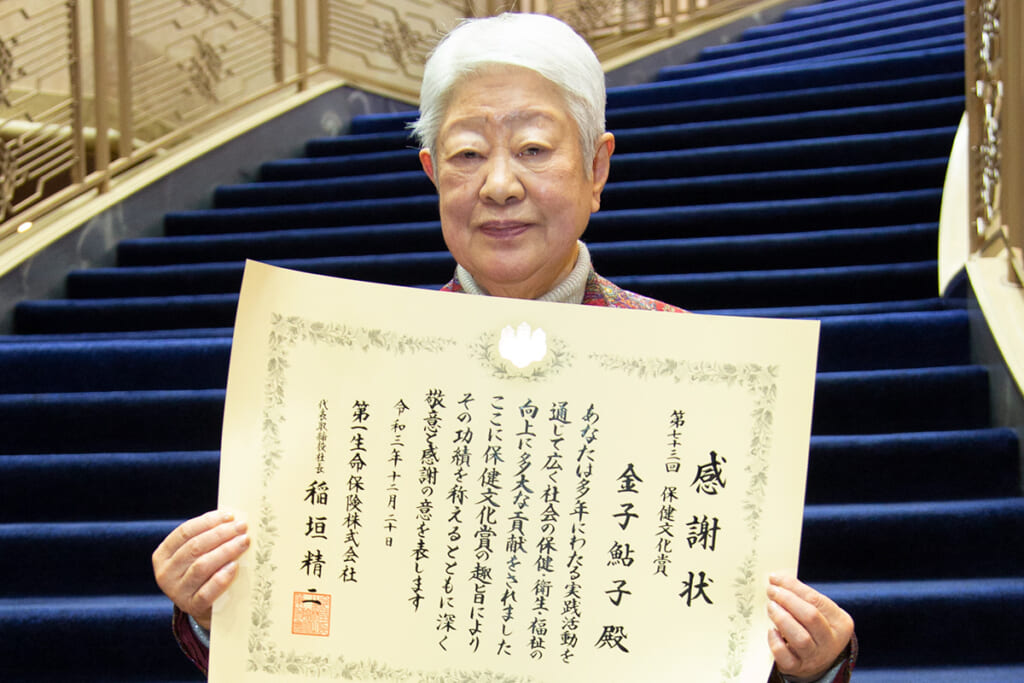 感謝状
第七十三回 保健文化賞
金子鮎子殿
あなたは多年にわたる実践活動を
通して広く社会の保健・衛生・福祉の
向上に多大な貢献をされました
ここに保健文化賞の趣旨により
その功績を称えるとともに深く
敬意と感謝の意を表します
令和三年十二月二十日
第一生命保険株式会社
代表取締役社長 稲垣精二